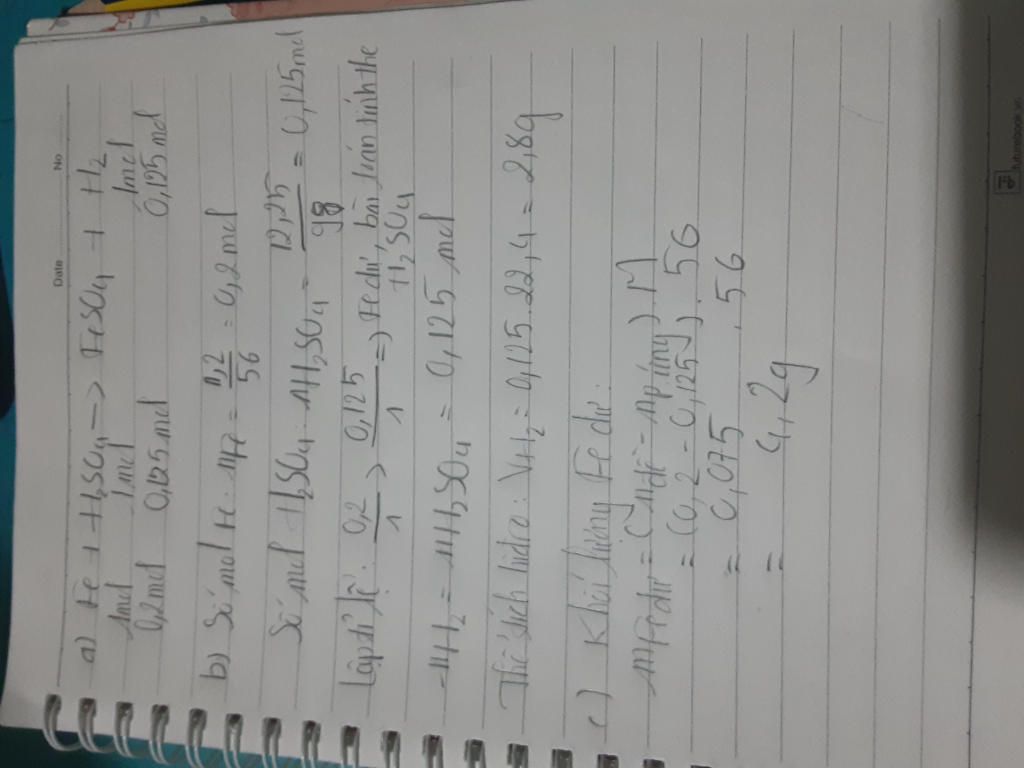 Date No
a) Fe + H2SO4 -> FeSO4 + H2
1mol 1mol 1mol
0,2mol 0,125mol 0,125mol
b) Số mol Fe: nFe = 11,2/56 = 0,2mol
Số mol H2SO4: nH2SO4 = 12,25/98 = 0,125mol
Lập tỉ lệ: 0,2/1 > 0,125/1 => Fe dư, bài toán tính the
H2SO4
nH2 = nH2SO4 = 0,125 mol
Thể tích hidro: VH2 = 0,125.22,4 = 2,8g
c) Khối lượng Fe dư:
mFe dư = (nđề - np.ứng).M
= (0,2 - 0,125).56
= 0,075 .56
= 4,2g
futurebook.vn